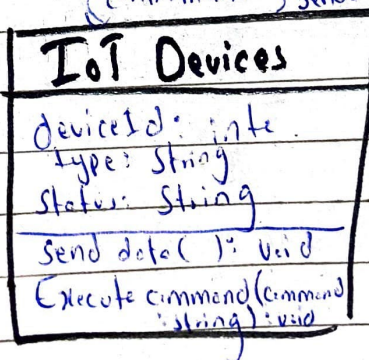 IoT Devices
deviceId: inte.
type: String
Status: String
Send data( ): void
Execute command(command
:string): void